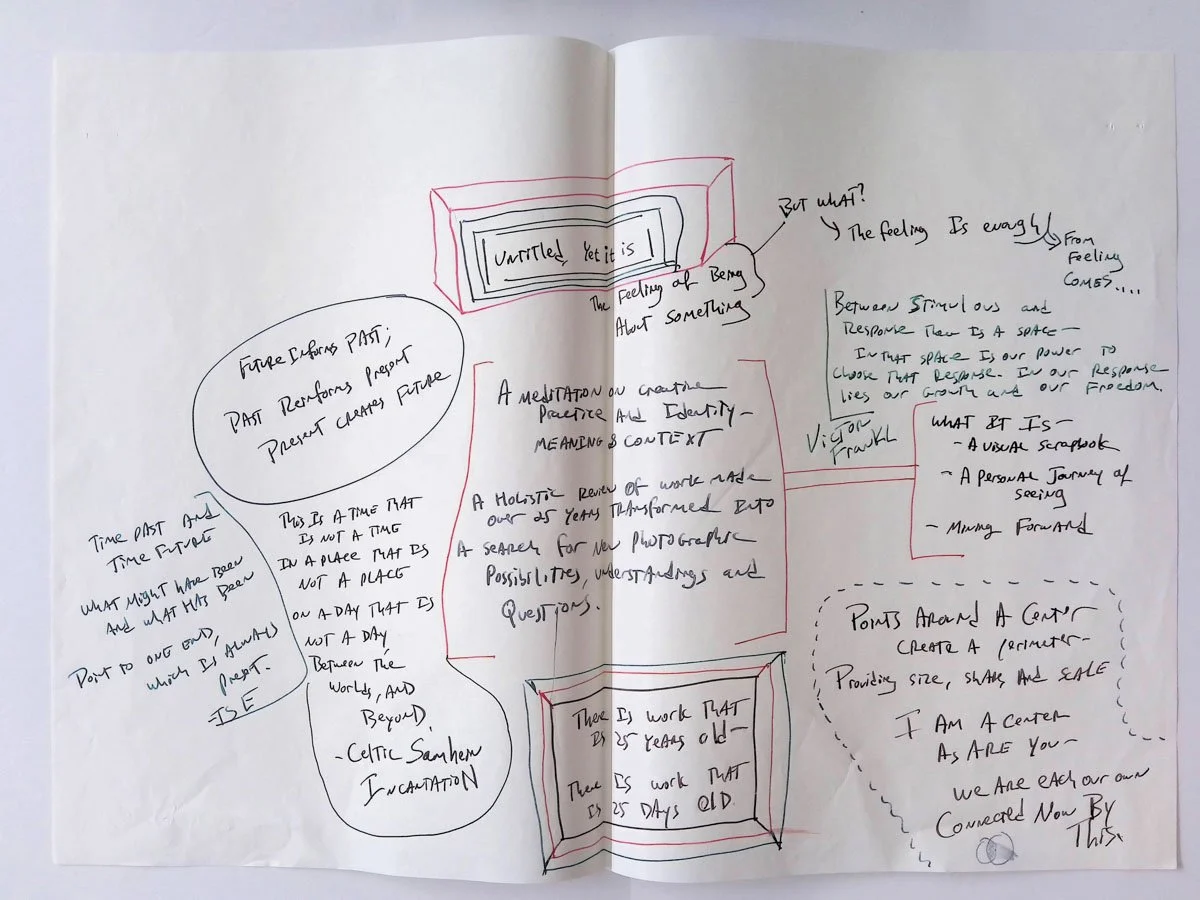 Untitled, Yet it is
The Feeling of Being
About Something
But what?
The feeling Is enough
From
Feeling
Comes....
Future Informs Past;
Past Reinforms Present
Present Creates Future
Time Past and
Time Future
What might have been
and what has been
Point to one end,
which is always
present.
This Is A Time That
Is not a time
In a place that is
not a place
on a day that is
not a day,
Between the
worlds, and
Beyond.
- Celtic Samhein
Incantation
A meditation on creative
Practice and Identity -
Meaning & Context
A Holistic Review of work made
over 25 years transformed into
A search for new photographic
Possibilities, understandings and
Questions.
There Is work that
Is 25 years old -
There Is work that
Is 25 days old.
Between Stimulous and
Response then Is A space -
In that space Is our power to
choose that Response. In our Response
lies our Growth and our Freedom.
Victor
Frankl
What It Is -
- A visual scrapbook
- A Personal Journey of
seeing
- Mining Forward
Points Around A Center
create a perimeter -
Providing size, shape, and scale
I am a center
As are you -
we are each our own
Connected Now By
This.